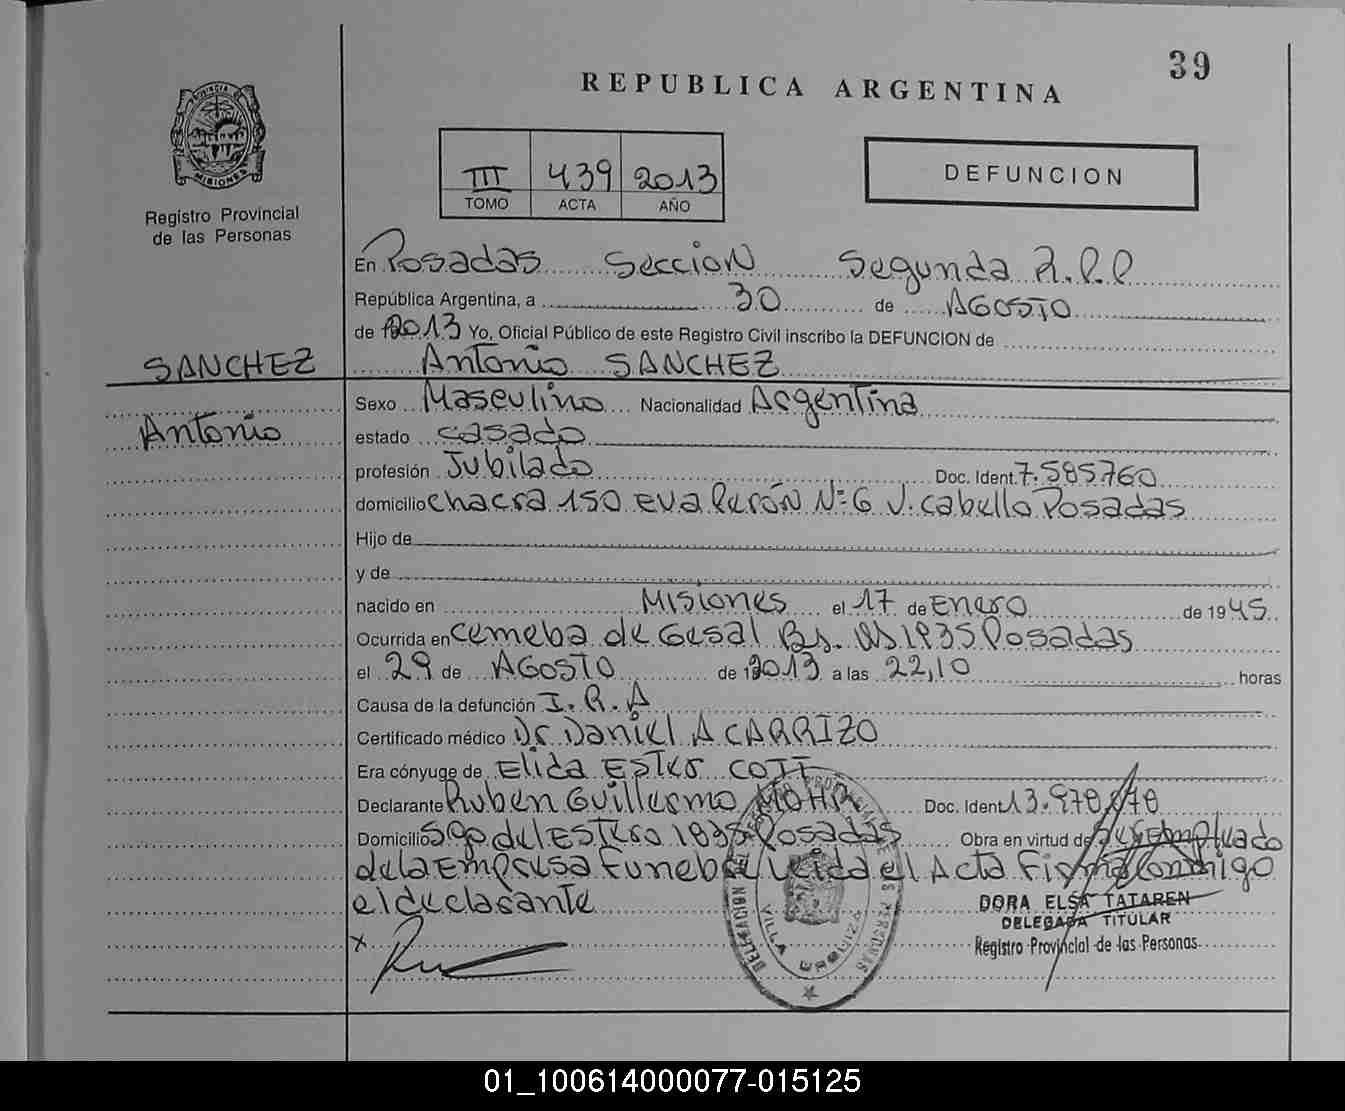 39
REPUBLICA ARGENTINA
PROVINCIA DE
MISIONES
Registro Provincial
de las Personas
III 439 2013
TOMO ACTA AÑO
DEFUNCION
En Posadas Seccion Segunda R.P.P
República Argentina, a 30 de AGOSTO
de 2013 Yo, Oficial Público de este Registro Civil inscribo la DEFUNCION de
SANCHEZ
Antonio SANCHEZ
Antonio
Sexo Masculino Nacionalidad Argentina
estado casado
profesión Jubilado Doc. Ident. 7.585.760
domicilio chacra 150 Eva Perón Nº 6 V. cabello Posadas
Hijo de
y de
nacido en Misiones el 17 de Enero de 1945
Ocurrida en cemeba de Gesal Bs. As 1935 Posadas
el 29 de AGOSTO de 2013 a las 22,10 horas
Causa de la defunción I.R.A
Certificado médico Dr Daniel A CARRIZO
Era cónyuge de Elida Ester
Declarante Ruben Guillermo Doc. Ident 13.978.
Domicilio Sgo del Estero 1835 Posadas Obra en virtud de Empleado
de la Empresa Funebre Leida el Acta Firma conmigo
el declarante
DORA ELSA TATAREN
DELEGADA TITULAR
Registro Provincial de las Personas
x
DELEGACION
VILLA URQUIZA
01_100614000077-015125